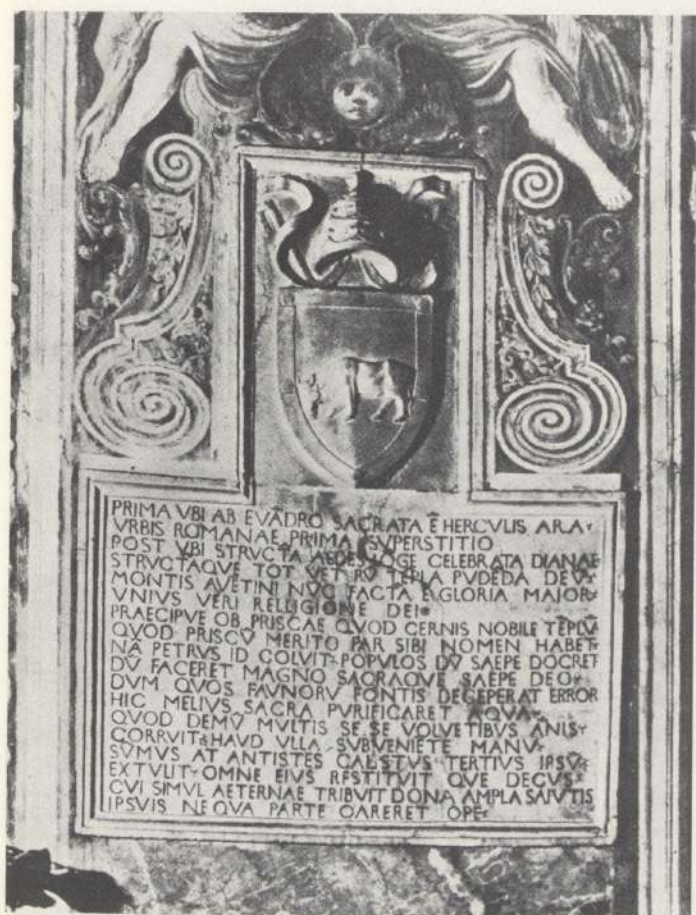 PRIMA VBI AB EVĀDRO SACRATA Ē HERCVLIS ARA
VRBIS ROMANAE PRIMA SVPERSTITIO
POST VBI STRVCTA AEDES LŌGE CELEBRATA DIANAE
STRVCTAQVE TOT VETERV TĒPLA PVDĒDA DEV
MONTIS AVĒTINI NVC FACTA Ē GLORIA MAIOR
VNIVS VERI RELLIGIONE DEI
PRAECIPVE OB PRISCAE QVOD CERNIS NOBILE TĒPLV
QVOD PRISCV MERITO PAR SIBI NOMEN HABET
NĀ PETRVS ID COLVIT POPVLOS DV SAEPE DOCRET
DV FACERET MAGNO SACRAQVE SAEPE DEO
DVM QVOS FAVNORV FONTIS DECEPERAT ERROR
HIC MELIVS SACRA PVRIFICARET AQVA
QVOD DEMV MVLTIS SE SE VOLVĒTIBVS ANIS
CORRVIT HAVD VLLA SVBVENIĒTE MANV
SVMVS AT ANTISTES CALSTVS TERTIVS IPSV
EXTVLIT OMNE EIVS RESTITVIT QVE DECVS
CVI SIMVL AETERNAE TRIBVIT DONA AMPLA SAIVTIS
IPSVIS NE QVA PARTE OARERET OPE